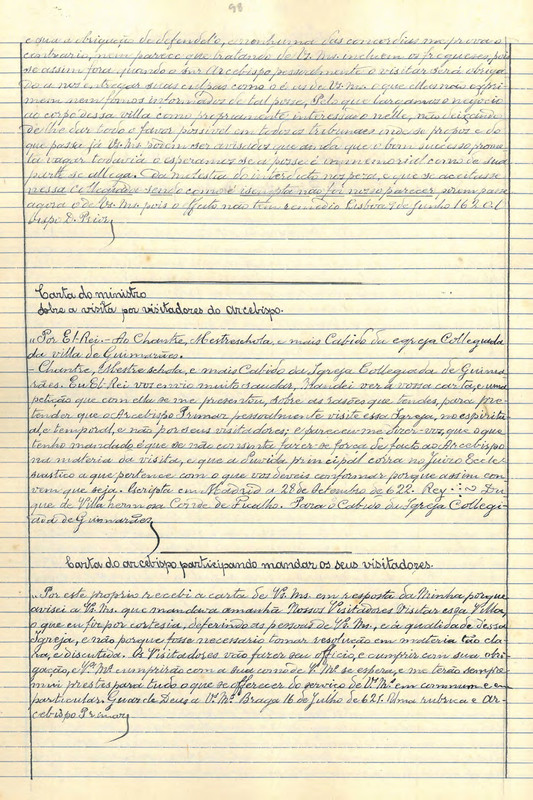 98
e que a obrigação de defendel'o, e nenhuma das concordias me prova o
contrario, nem parece que tratando de Vs. Ms. incluem os freguezes, pois
se assim fora, quando o Snr Arcebispo pessoalmente o visitar será obriga-
do a nos entregar suas culpas como o é as de Vs. Ms. o que ellas não expri-
mem nem fomos informados de tal posse, Pelo que largamos o negocio
ao corpo dessa villa como propriamente interessado nelle, não deixando
de lhe dar todo o favor possivel em todos os tribunaes onde se propoz e do
que passei já Vs. Ms. podem ser avisados que ainda que o bom successo, prome-
ta vagar todavia o esperamos se a posse é immemorial como de sua
parte se allega. Da molestia do interdicto nos peza, e que se aceitasse
nessa Collegiada sendo como é isempta não foi nosso parecer, porem passe
agora o de Vs. Ms. pois o effeito não tem remedio Lisboa 7 de Junho 1620 //
bispo D. Prior
Carta do ministro
Sobre a visita por visitadores do arcebispo.
„Por El-Rei.- Ao Chantre, Mestreschola, e mais Cabido da egreja Collegiada
da villa de Guimarães.
- Chantre, Mestre schola, e mais Cabido da Igreja Collegiada de Guima-
rães. Eu El Rei vos envio muito saudar, Mandei ver a vossa carta, e uma
petição que com ella se me presentou, sobre as rasões que tendes, para pre-
tender que o Arcebispo Primaz pessoalmente visite essa Igreja, no espiritu-
al, e temporal, e não por seus visitadores; e pareceu-me dizer-vos, que o que
tenho mandado é que se não consinta fazer-se força de facto ao Arcebispo
na materia da visita, e que a Duvida principal corra no Juizo Eccle-
siastico a que pertence com o que vos deveis conformar porque assim con-
vem que seja. Escripta em Madrid a 28 de Setembro de 622. Rey. Du-
que de Villa hermosa Conde de Ficalho. Para o Cabido da Igreja Collegi-
ada de Guimarães
Carta do arcebispo participando mandar os seus visitadores.
„Por este proprio recebi a carta de Vs. Ms. em resposta da Minha porque
avisei a Vs. Ms. que mandava amanhã Nossos Visitadores Visitar essa Villa,
o que eu fiz por cortesia, deferindo as pessoas de Vs. Ms., e á qualidade dessa
Igreja, e não porque fosse necessario tomar resolução em materia tão cla-
ra, e discutida. Os Visitadores vão fazer seu officio, e cumprir com sua obri-
gação, e Vas. Ms. cumprirão com a sua como de Vs. Ms. se espera, e me terão sempre
mui prestes para tudo o que se offerecer do serviço de Vas. Mes. em commum e em
particular. Guarde Deus a Vas. Mes. Braga 16 de Julho de 621. Uma rubrica e Ar-
cebispo Primaz